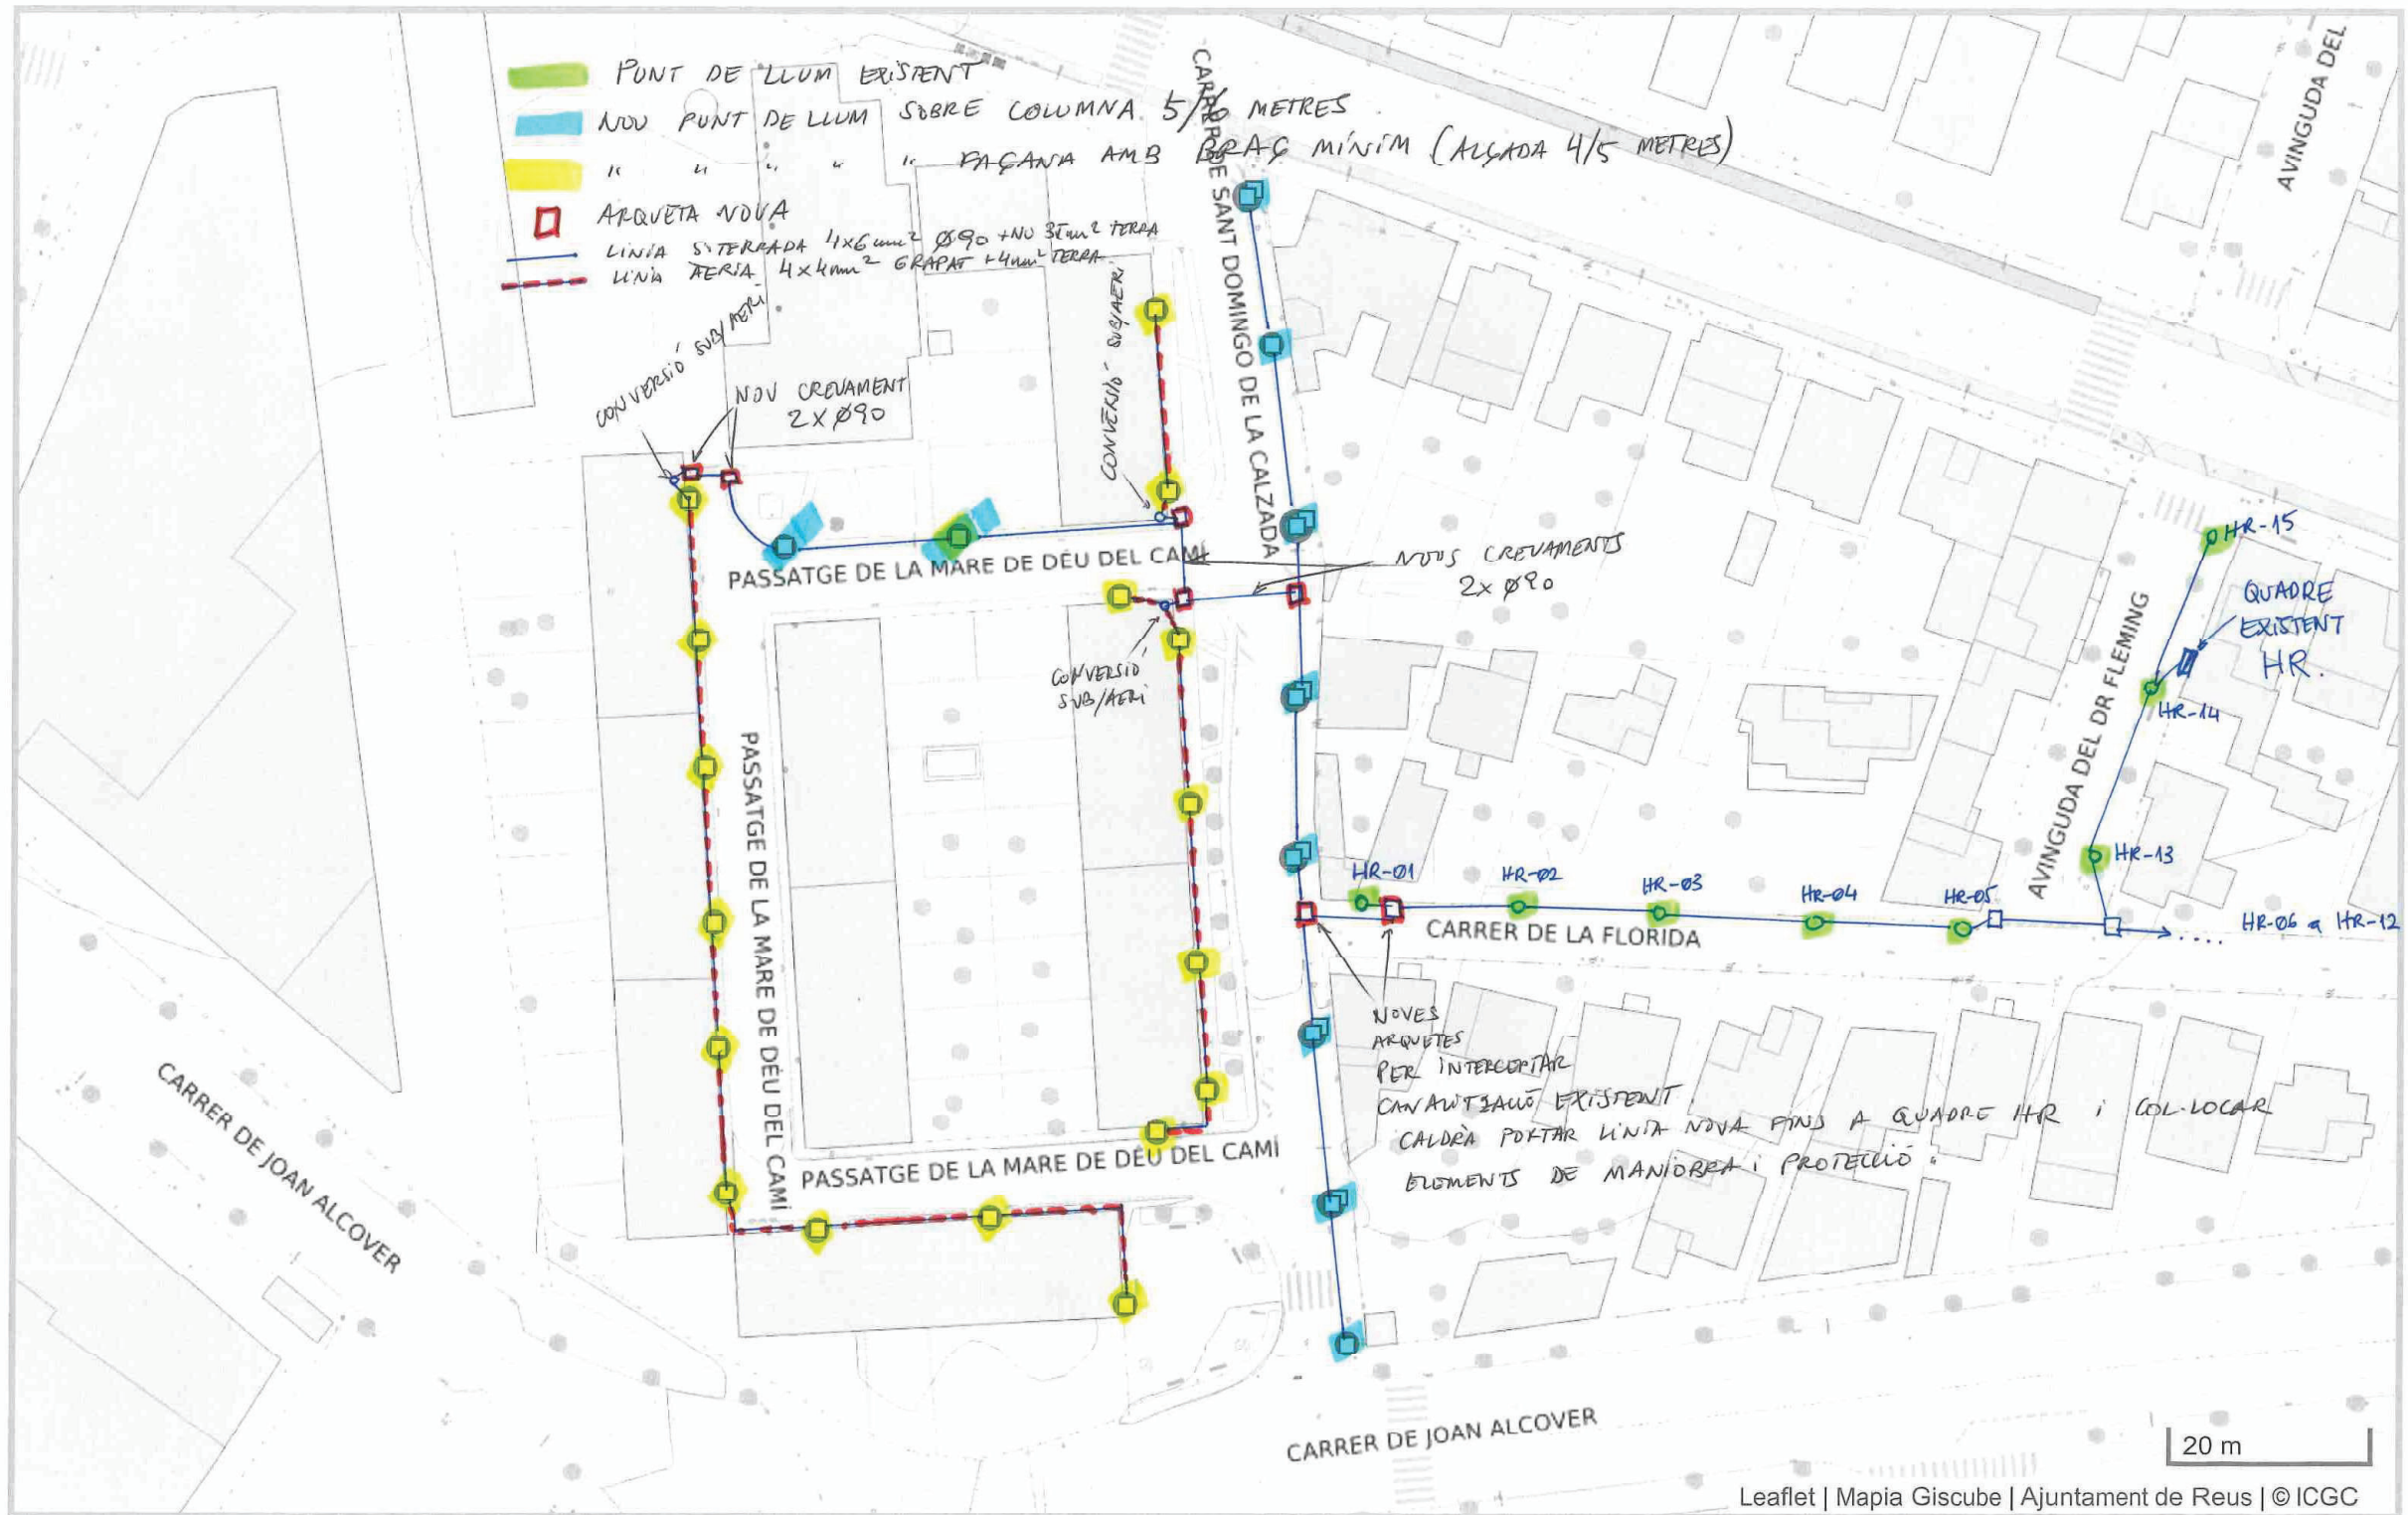 PUNT DE LLUM EXISTENT
NOU PUNT DE LLUM SOBRE COLUMNA 5/6 METRES
" " " " " FAÇANA AMB BRAÇ MÍNIM (ALÇADA 4/5 METRES)
ARQUETA NOVA
LINIA SOTERRADA 4x6mm² Ø90 + NU 35mm² TERRA
LINIA AERIA 4x4mm² GRAPAT +4mm² TERRA
CARRER DE SANT DOMINGO DE LA CALZADA
AVINGUDA DEL
CONVERSIÓ SUB/AERI
NOU CREUAMENT
2XØ90
CONVERSIÓ SUB/AERI
PASSATGE DE LA MARE DE DÉU DEL CAMÍ
NOUS CREUAMENTS
2xØ90
CONVERSIÓ
SUB/AERI
HR-15
QUADRE
EXISTENT
HR.
HR-14
HR-13
AVINGUDA DEL DR FLEMING
HR-01
HR-02
HR-03
HR-04
HR-05
HR-06 a HR-12
CARRER DE LA FLORIDA
PASSATGE DE LA MARE DE DÉU DEL CAMÍ
NOVES
ARQUETES
PER INTERCEPTAR
CANALITZACIÓ EXISTENT.
CALDRÀ PORTAR LÍNIA NOVA FINS A QUADRE HR i COL·LOCAR
ELEMENTS DE MANIOBRA i PROTECCIÓ.
PASSATGE DE LA MARE DE DÉU DEL CAMÍ
CARRER DE JOAN ALCOVER
CARRER DE JOAN ALCOVER
20 m
Leaflet | Mapia Giscube | Ajuntament de Reus | © ICGC